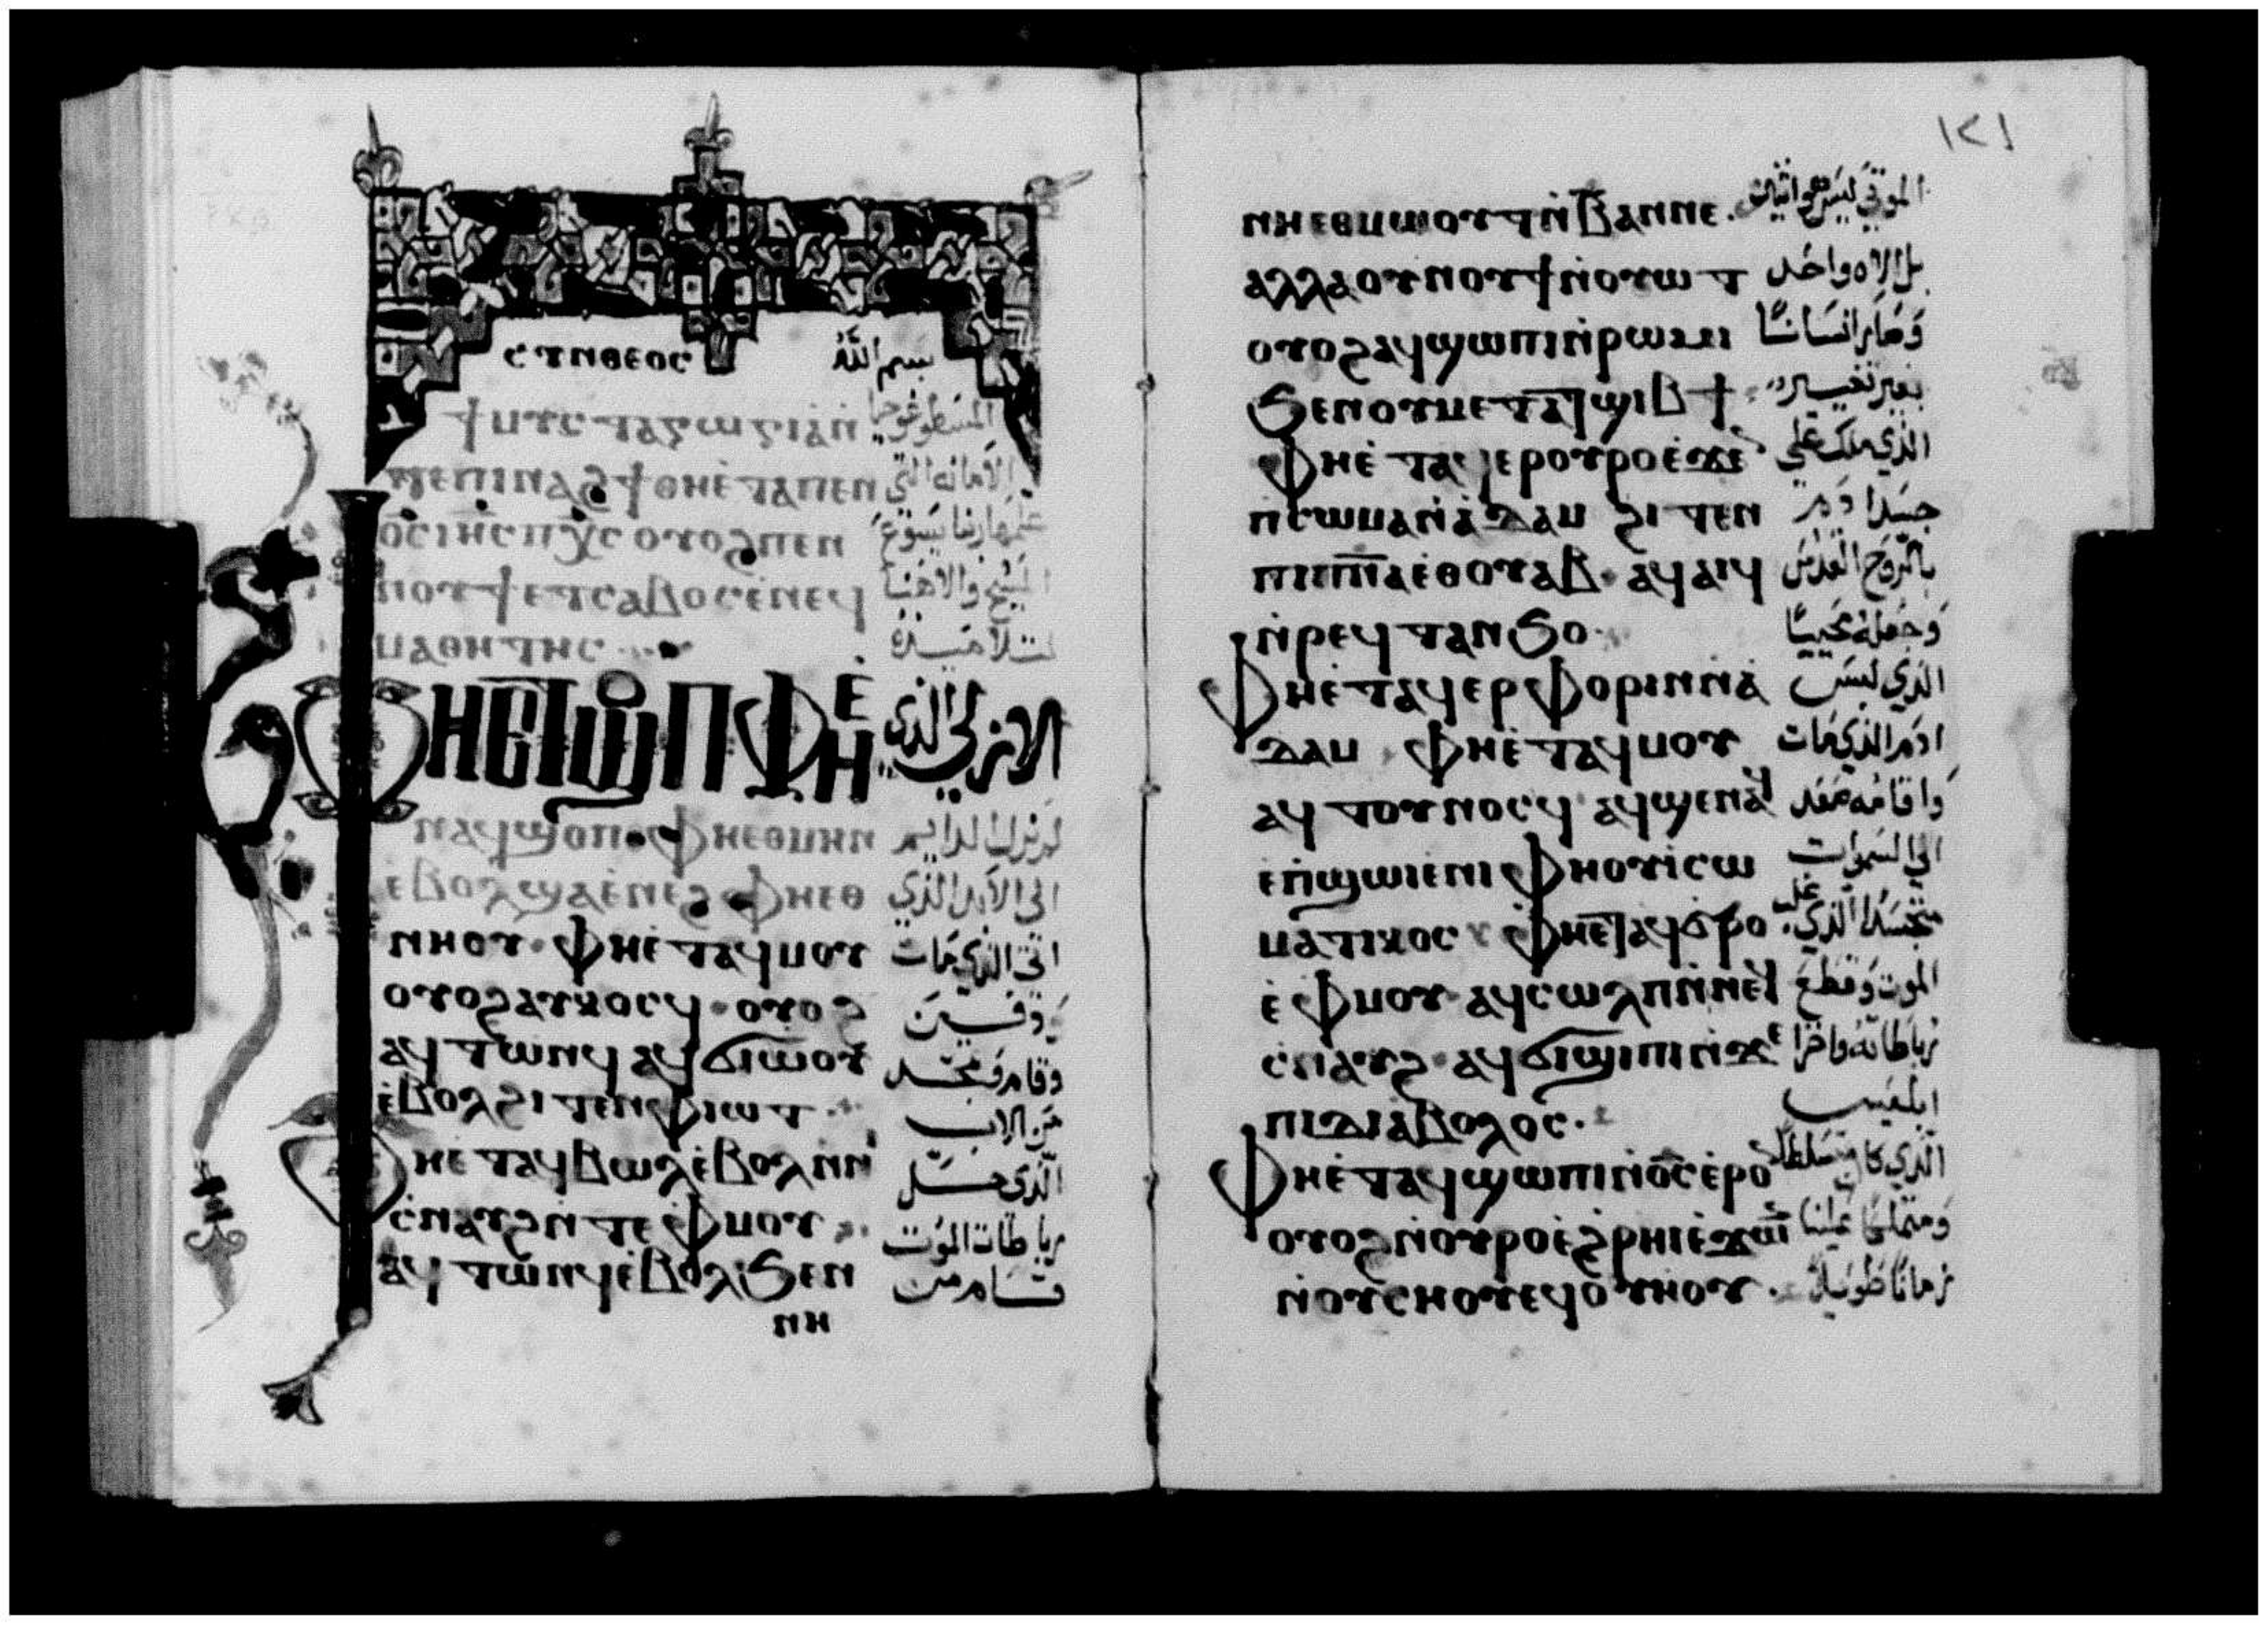 ⲥⲩⲛⲑⲉⲟⲥ بسم الله
ϯⲙⲩⲥⲧⲁⲅⲱⲅⲓⲁ̀ⲛ̀
ϯⲑⲏⲉ̀ⲧⲁⲡⲉⲛ الامانه التي
ⲟ̅ⲥ̅ ⲓⲏ̅ⲥ̅ ⲡⲭ̅ⲥ̅ ⲟⲩⲟϩⲡⲉⲛ علمها ربنا يسوع
ⲛⲟⲩϯⲉⲧⲥⲁⲃⲟⲥⲉ̀ⲛⲉϥ المسيح والاهنا
ⲙⲁⲑⲏⲧⲏⲥ لتلاميذه
ⲫⲏⲉⲧϣⲟⲡ ⲫⲏⲉ̀ الازلي الذي
ⲛⲁϥϣⲟⲡ ⲫⲏⲉⲑⲙⲏⲛ لم يزل الدايم
ⲉ̀ⲃⲟⲗϣⲁⲉ̀ⲛⲉϩ ⲫⲏⲉⲑ الى الابد الذي
ⲛⲏⲟⲩ ⲫⲏⲉ̀ⲧⲁϥⲙⲟⲩ اتى الذي مات
ⲟⲩⲟϩⲁⲩⲕⲟⲥϥ ⲟⲩⲟϩ ودفن
ⲁϥⲧⲱⲛϥ ⲁϥϭⲓⲱⲟⲩ وقام وتمجد
ⲉ̀ⲃⲟⲗϩⲓⲧⲉⲛⲫⲓⲱⲧ من الاب
ⲫⲏⲉ̀ⲧⲁϥⲃⲱⲗⲉ̀ⲃⲟⲗⲛ̀ⲛⲓ الذي حل
ⲥ̀ⲛⲁⲩϩⲛ̀ⲧⲉⲫ̀ⲙⲟⲩ رباطات الموت
ⲁϥⲧⲱⲛϥⲉ̀ⲃⲟⲗϧⲉⲛ قام من
ⲛⲏ
١٢١
ⲛⲏⲉⲑⲙⲱⲟⲩⲧ ⲛ̀ⲃⲁⲛⲛⲉ. الموتى ليس هو اثنين
ⲁⲗⲗⲁⲟⲩⲛⲟⲩϯⲛ̀ⲟⲩⲱⲧ بل الاه واحد
ⲟⲩⲟϩⲁϥϣⲱⲡⲓⲛ̀ⲣⲱⲙⲓ وصار انسانا
ϧⲉⲛⲟⲩⲙⲉⲧⲁⲧϣⲓⲃϯ بغير تغيير
ⲫⲏⲉ̀ⲧⲁϥⲉⲣⲟⲩⲣⲟⲉ̀ϫⲉ الذي ملك على
ⲡ̀ⲥⲱⲙⲁⲛ̀ⲁ̀ⲇⲁⲙ ϩⲓⲧⲉⲛ جسد ادم
ⲡⲓⲡ̅ⲛ̅ⲁ̅ⲉⲑⲟⲩⲁⲃ ⲁϥⲁⲓϥ بالروح القدس
ⲛ̀ⲣⲉϥⲧⲁⲛϧⲟ وجعله محييا
ⲫⲏⲉ̀ⲧⲁϥⲉⲣⲫⲟⲣⲓⲛⲛ̀ⲁ̀ الذي لبس
ⲇⲁⲙ ⲫⲏⲉ̀ⲧⲁϥⲙⲟⲩ ادم الذي مات
ⲁϥⲧⲟⲩⲛⲟⲥϥ ⲁϥϣⲉⲛⲁϥ واقامه صعد
ⲉⲡ̀ϣⲱⲓⲉⲛⲓⲫⲏⲟⲩⲓ̀ⲥⲱ الى السموات
ⲙⲁⲧⲓⲕⲟⲥ ⲫⲏⲉⲧⲁϥϭⲣⲟ متجسدا الذي غلب
ⲉ̀ⲫ̀ⲙⲟⲩ ⲁϥⲥⲱⲗⲡⲛ̀ⲛⲉϥ الموت وقطع
ⲥ̀ⲛⲁⲩϩ ⲁϥϭⲓϣⲓⲡⲓⲛ̀ϫⲉ رباطاته واخزا
ⲡⲓⲇⲓⲁⲃⲟⲗⲟⲥ. ابليس
ⲫⲏⲉ̀ⲧⲁϥϣⲱⲡⲓⲛ̀ⲟ̅ⲥ̅ⲉ̀ⲣⲟ الذي كان متسلطا
ⲟⲩⲟϩⲛ̀ⲟⲩⲣⲟⲉ̀ϩ̀ⲣⲏⲓⲉ̀ϫⲱⲓ ومتملكا علينا
ⲛ̀ⲟⲩⲥⲏⲟⲩⲉϥⲟ̀ⲩⲏⲟⲩ. زمانا طويلا